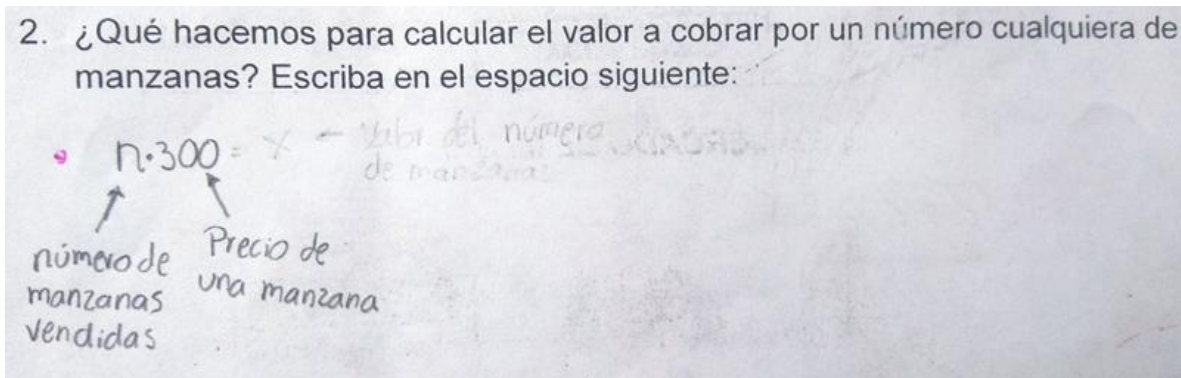 2. ¿Qué hacemos para calcular el valor a cobrar por un número cualquiera de
manzanas? Escriba en el espacio siguiente:
n·300 = x - Valor del número
de manzanas
número de
manzanas
vendidas
Precio de
una manzana